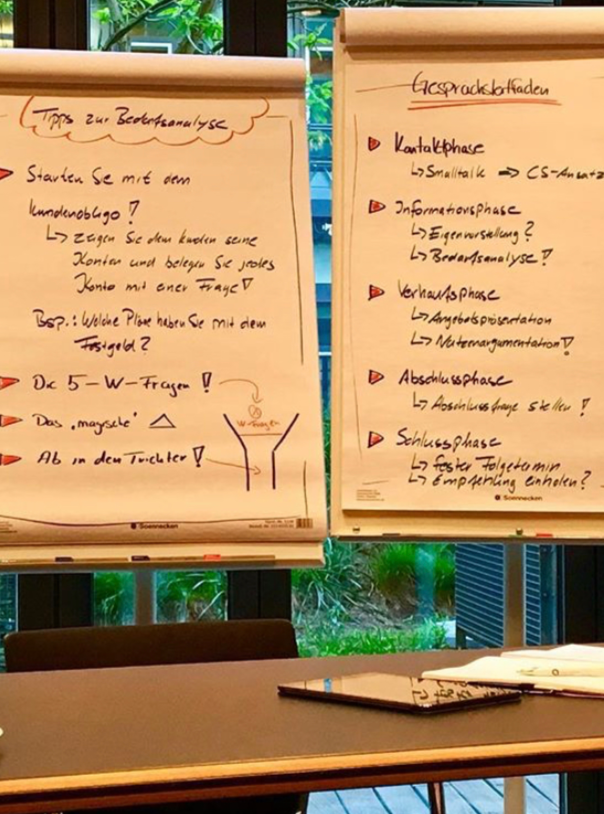 Tipps zur Bedarfsanalyse
Starten Sie mit dem
Kundenobligo!
↳ zeigen Sie dem Kunden seine
Konten und belegen Sie jedes
Konto mit einer Frage!
Bsp.: Welche Pläne haben Sie mit dem
Festgeld?
Die 5-W-Fragen!
Das "magische" △
Ab in den Trichter!
W-Fragen
Soennecken
Gesprächsleitfaden
Kontaktphase
↳ Smalltalk ⇒ CS-Ansatz
Informationsphase
↳ Eigenvorstellung?
↳ Bedarfsanalyse!
Verkaufsphase
↳ Angebotspräsentation
↳ Nutzenargumentation!
Abschlussphase
↳ Abschlussfrage stellen!
Schlussphase
↳ fester Folgetermin
↳ Empfehlung einholen?
Soennecken